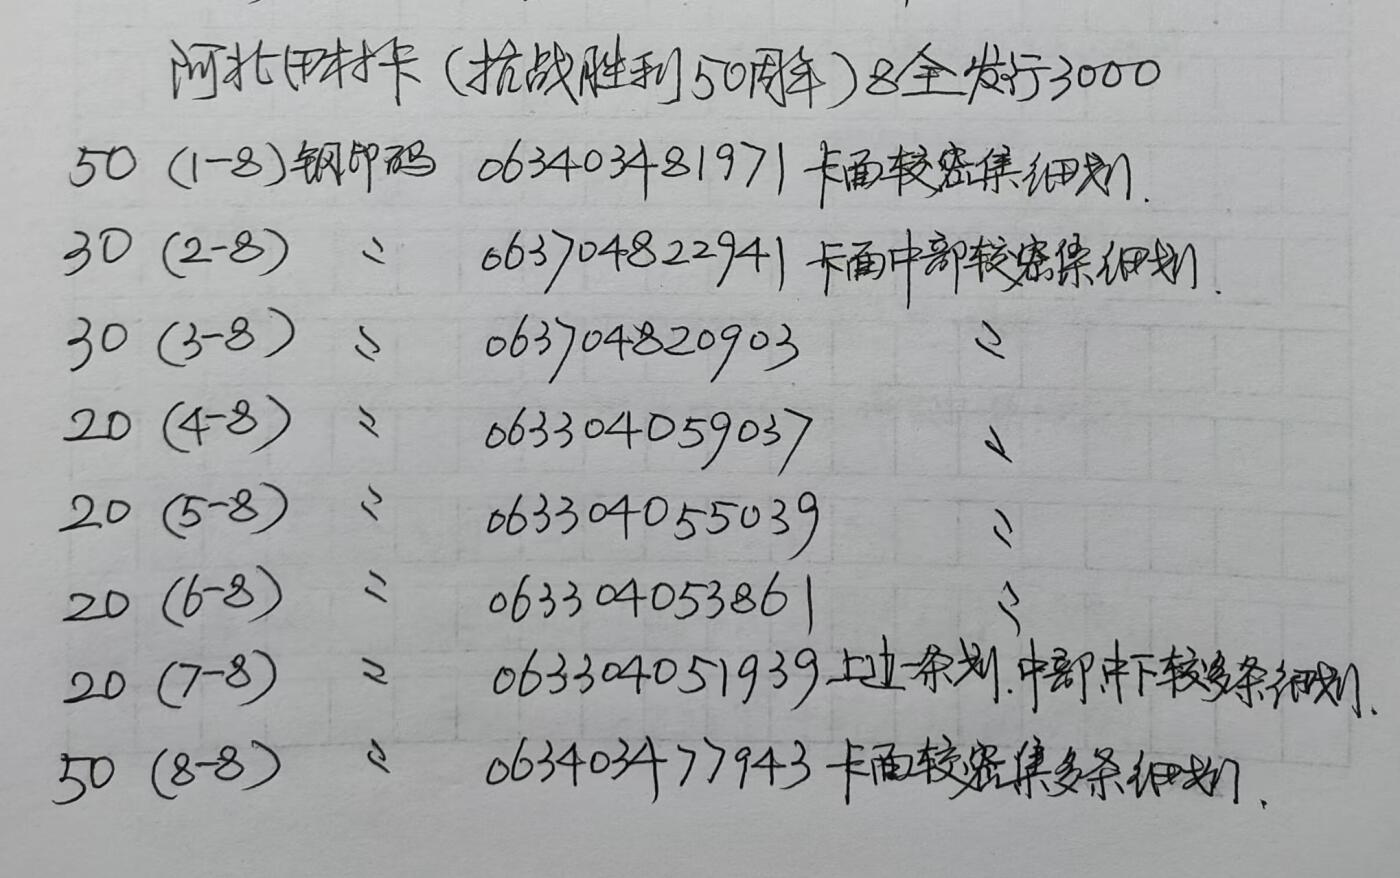 河北田村卡(抗战胜利50周年)8全发行3000
50 (1-8)钢印码 063403481971卡面较密集细划.
30 (2-8) 〃 063704822941卡面中部较密集细划.
30 (3-8) 〃 063704820903 〃
20 (4-8) 〃 063304059037 〃
20 (5-8) 〃 063304055039 〃
20 (6-8) 〃 063304053861 〃
20 (7-8) 〃 063304051939上边一条划.中部,中下较多条细划.
50 (8-8) 〃 063403477943卡面较密集多条细划.